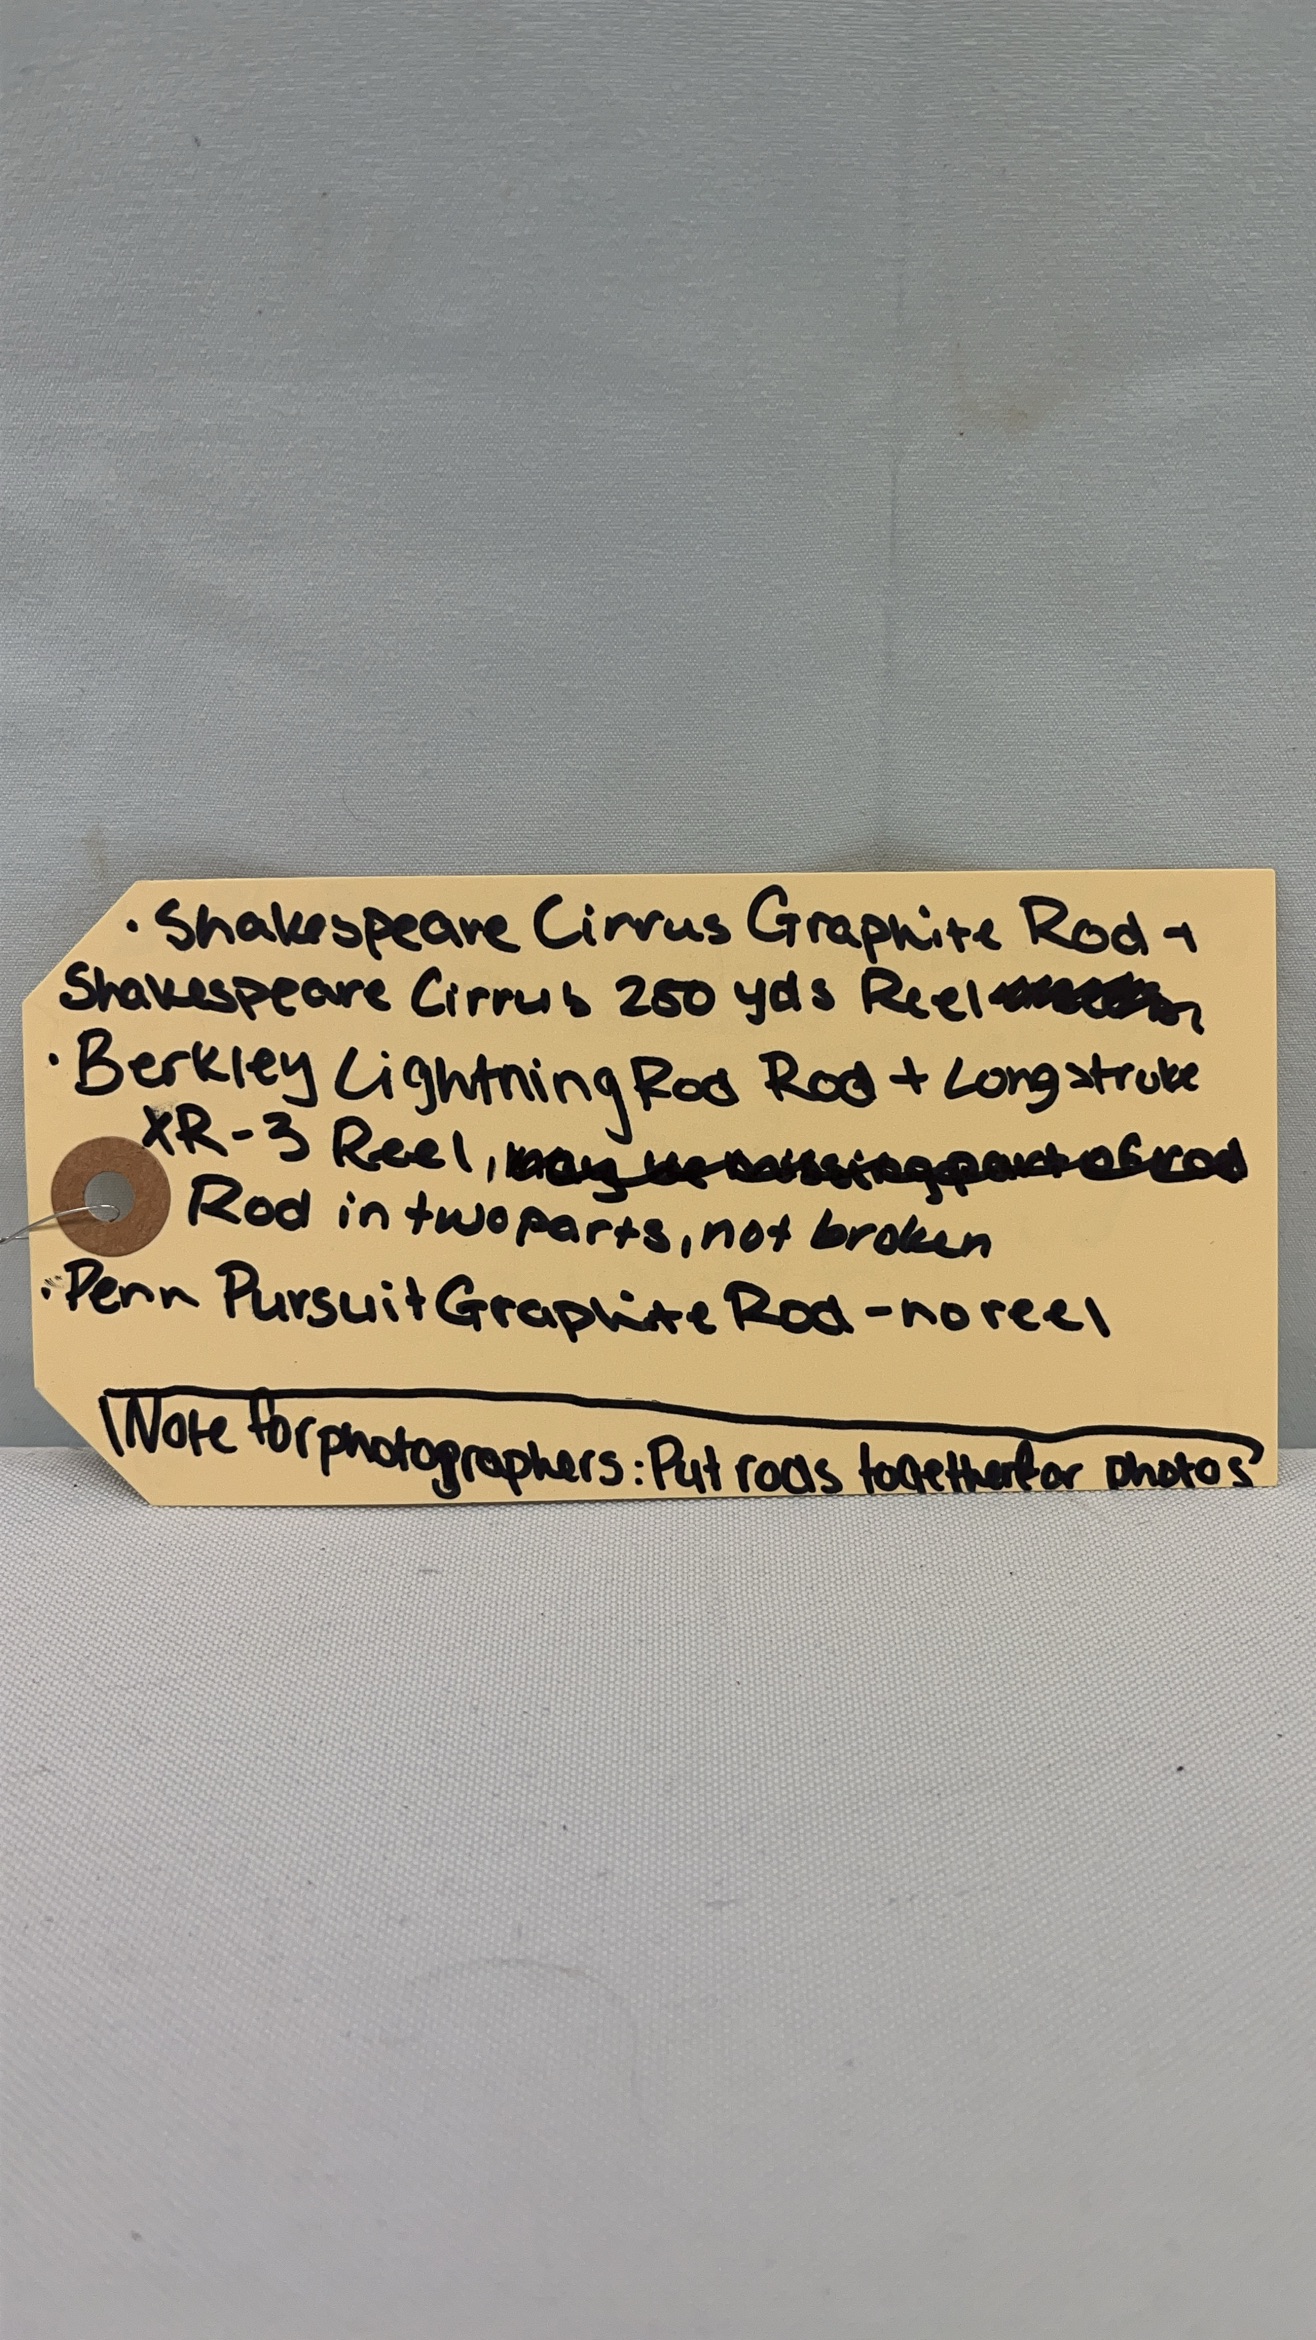 · Shakespeare Cirrus Graphite Rod +
Shakespeare Cirrus 250 yds Reel
· Berkley Lightning Rod Rod + Longstroke
XR-3 Reel, may be missing part of rod
Rod in two parts, not broken
· Penn Pursuit Graphite Rod - no reel
Note for photographers: Put rods together for photos